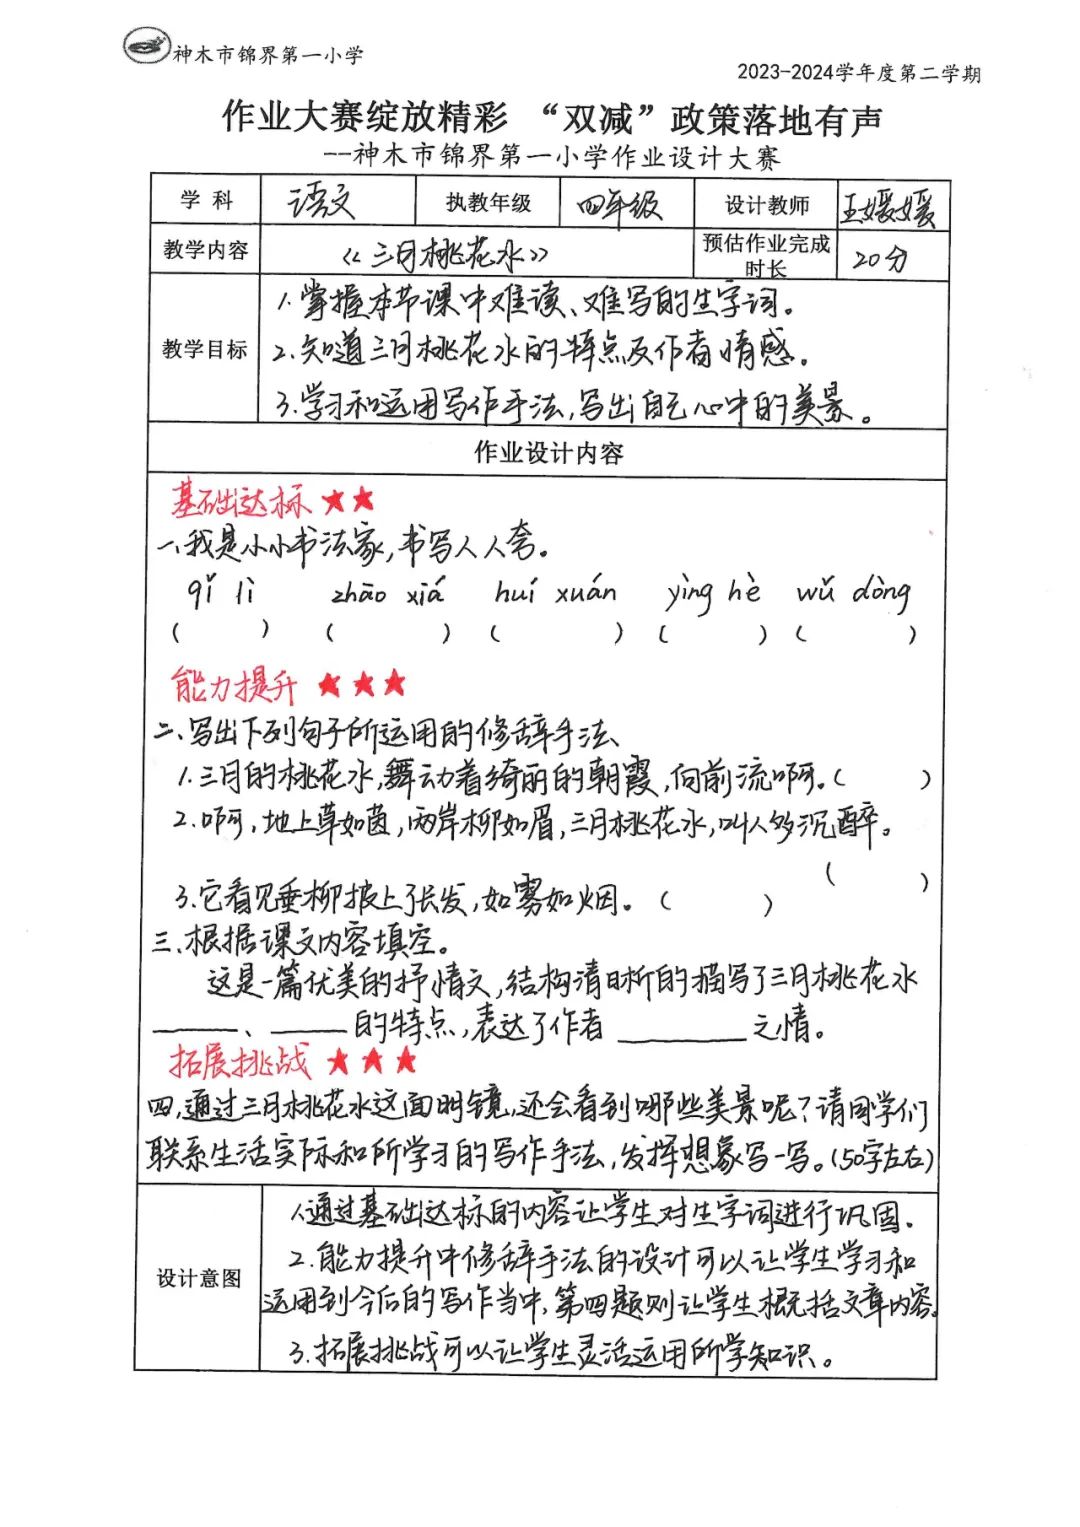 神木市锦界第一小学
2023-2024学年度第二学期
作业大赛绽放精彩 “双减”政策落地有声
--神木市锦界第一小学作业设计大赛
学 科 语文 执教年级 四年级 设计教师 王媛媛
教学内容 《三月桃花水》 预估作业完成时长 20分
教学目标
1.掌握本节课中难读、难写的生字词。
2.知道三月桃花水的特点及作者情感。
3.学习和运用写作手法,写出自己心中的美景。
作业设计内容
基础达标★★
一、我是小小书法家,书写人人夸。
qǐ lì zhāo xiá huí xuán yìng hè wǔ dòng
( ) ( ) ( ) ( ) ( )
能力提升 ★★★
二、写出下列句子所运用的修辞手法、
1.三月的桃花水,舞动着绮丽的朝霞,向前流啊。( )
2.啊,地上草如茵,两岸柳如眉,三月桃花水,叫人多沉醉。
( )
3.它看见垂柳披上了长发,如雾如烟。( )
三、根据课文内容填空。
这是一篇优美的抒情文,结构清晰的描写了三月桃花水
______、______的特点,表达了作者__________之情。
拓展挑战 ★★★
四,通过三月桃花水这面明镜,还会看到哪些美景呢?请同学们
联系生活实际和所学习的写作手法,发挥想象写一写。(50字左右)
设计意图
1.通过基础达标的内容让学生对生字词进行巩固.
2.能力提升中修辞手法的设计可以让学生学习和
运用到今后的写作当中,第四题则让学生概括文章内容。
3.拓展挑战可以让学生灵活运用所学知识。